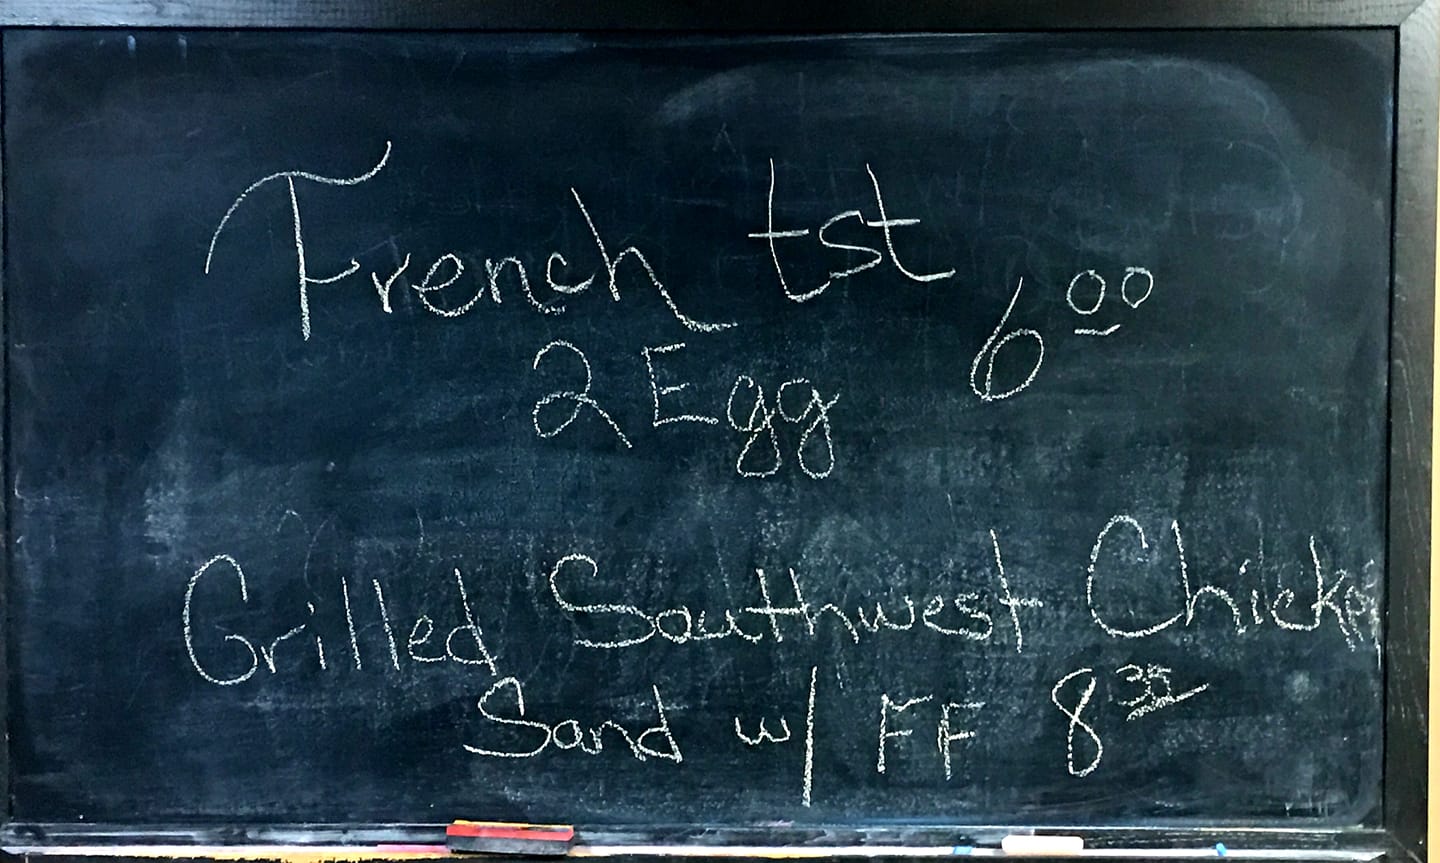 French tst 6 00
2 Egg
Grilled Southwest Chicken
Sand w/ FF 8 35